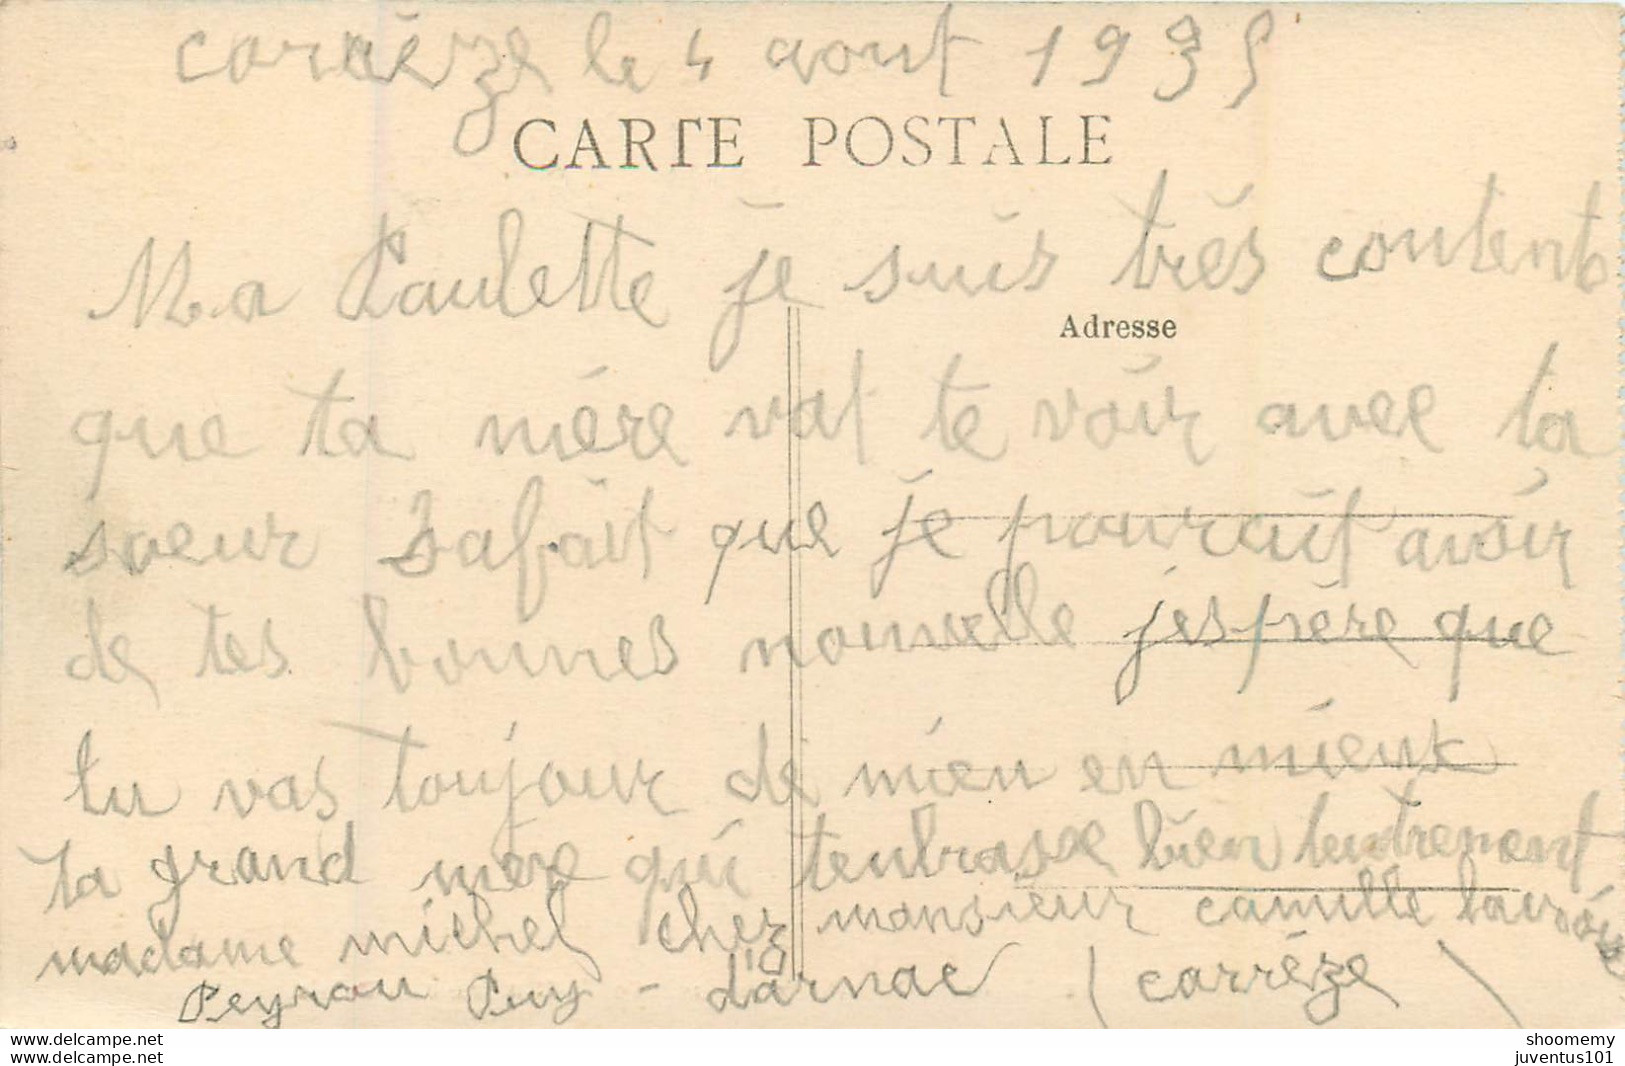 corrèze le 4 aout 1935
CARTE POSTALE
Ma Paulette je suis très contente
Adresse
que ta mère vat te voir avec ta
soeur safait que je pourait avoir
de tes bonnes nouvelle j'espère que
tu vas toujour de mieu en mieux
ta grand mère qui t'enbrasse bien tendrement
madame michel chez monsieur camille
Peyrou Puy - d'arnac (corrèze)
www.delcampe.net
www.delcampe.net
shoomemy
juventus101